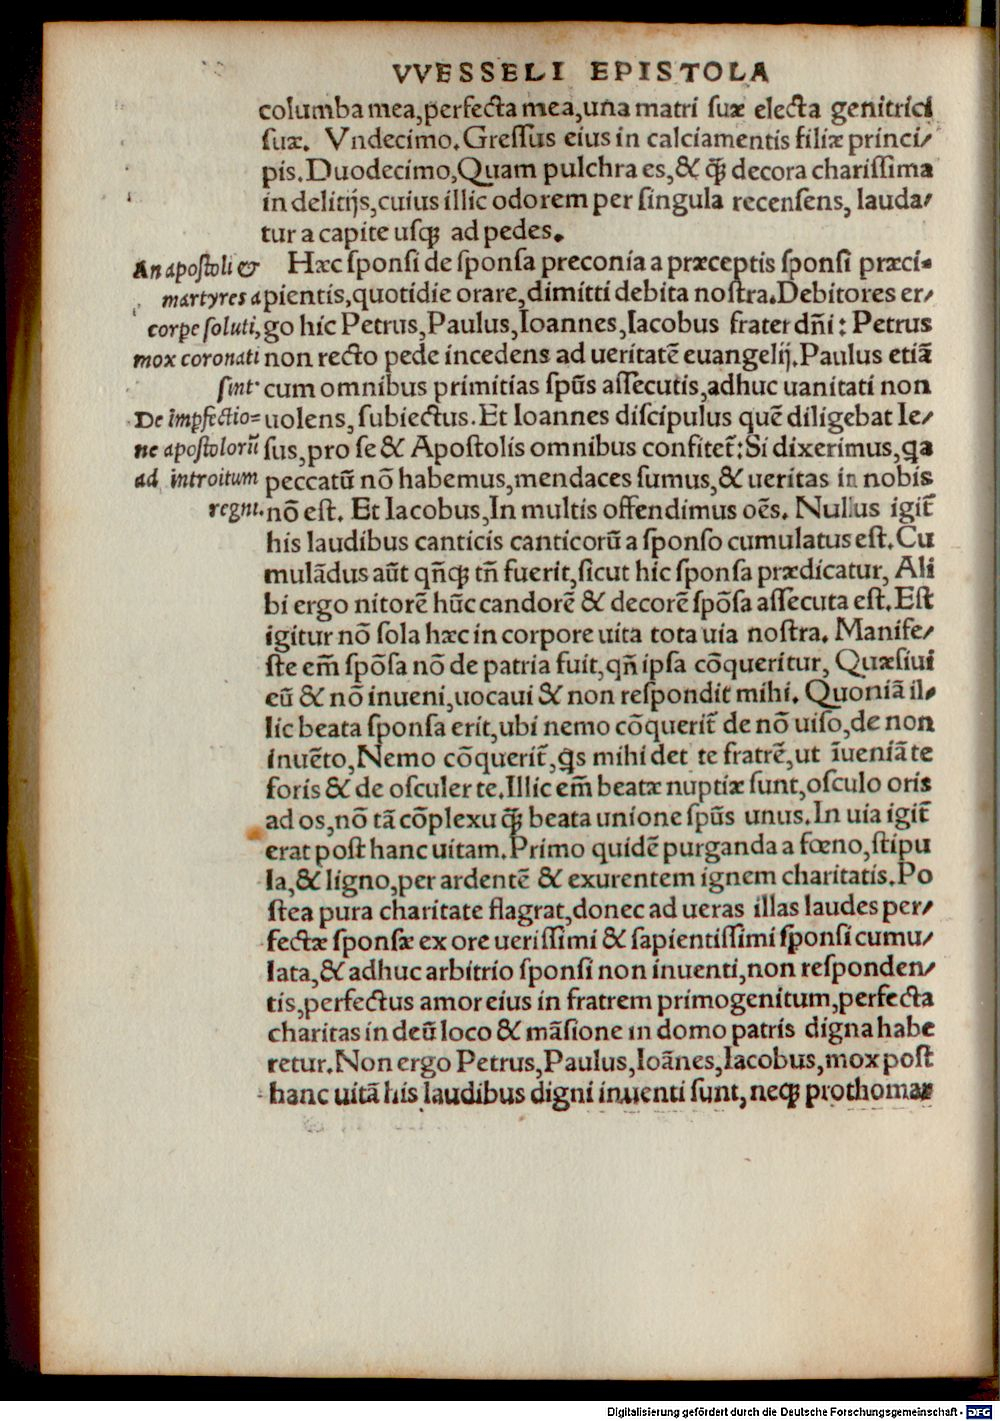 VVESSELI EPISTOLA
columba mea,perfecta mea,una matri suæ electa genitrici
suæ. Vndecimo.Gressus eius in calciamentis filiæ princi/
pis.Duodecimo,Quam pulchra es,& q̃ decora charissima
in delitijs,cuius illic odorem per singula recensens, lauda/
tur a capite usq; ad pedes.
Hæc sponsi de sponsa preconia a præceptis sponsi præci-
pientis,quotidie orare,dimitti debita nostra.Debitores er/
go hic Petrus,Paulus,Ioannes,Iacobus frater dñi: Petrus
non recto pede incedens ad ueritatẽ euangelij.Paulus etiã
cum omnibus primitias spũs assecutis,adhuc uanitati non
uolens, subiectus. Et Ioannes discipulus quẽ diligebat Ie/
sus,pro se & Apostolis omnibus confitet̃: Si dixerimus,qa
peccatũ nõ habemus,mendaces sumus,& ueritas in nobis
nõ est. Et Iacobus,In multis offendimus oẽs. Nullus igit̃
his laudibus canticis canticorũ a sponso cumulatus est.Cu
mulãdus aũt qñcq; tñ fuerit,sicut hic sponsa prædicatur, Ali
bi ergo nitorẽ hũc candorẽ & decorẽ spõsa assecuta est.Est
igitur nõ sola hæc in corpore uita tota uia nostra. Manife/
ste em̃ spõsa nõ de patria fuit,qñ ipsa cõqueritur, Quæsiui
eũ & nõ inueni,uocaui & non respondit mihi. Quoniã il/
lic beata sponsa erit,ubi nemo cõquerit̃ de nõ uiso,de non
inuẽto,Nemo cõquerit̃,qs mihi det te fratrẽ,ut ĩueniã te
foris & de osculer te.Illic em̃ beatæ nuptiæ sunt,osculo oris
ad os,nõ tã cõplexu q̃ beata unione spũs unus.In uia igit̃
erat post hanc uitam.Primo quidẽ purganda a fœno,stipu
la,& ligno,per ardentẽ & exurentem ignem charitatis.Po
stea pura charitate flagrat,donec ad ueras illas laudes per/
fectæ sponsæ ex ore uerissimi & sapientissimi sponsi cumu/
lata,& adhuc arbitrio sponsi non inuenti,non responden/
tis,perfectus amor eius in fratrem primogenitum,perfecta
charitas in deũ loco & mãsione in domo patris digna habe
retur.Non ergo Petrus,Paulus,Ioãnes,Iacobus,mox post
hanc uitã his laudibus digni inuenti sunt,neq; prothomar
An apostoli &
martyres a
corpe soluti,
mox coronati
sint.
De ĩpfectio=
ne apostolorũ
ad introitum
regni.
Digitalisierung gefördert durch die Deutsche Forschungsgemeinschaft - DFG